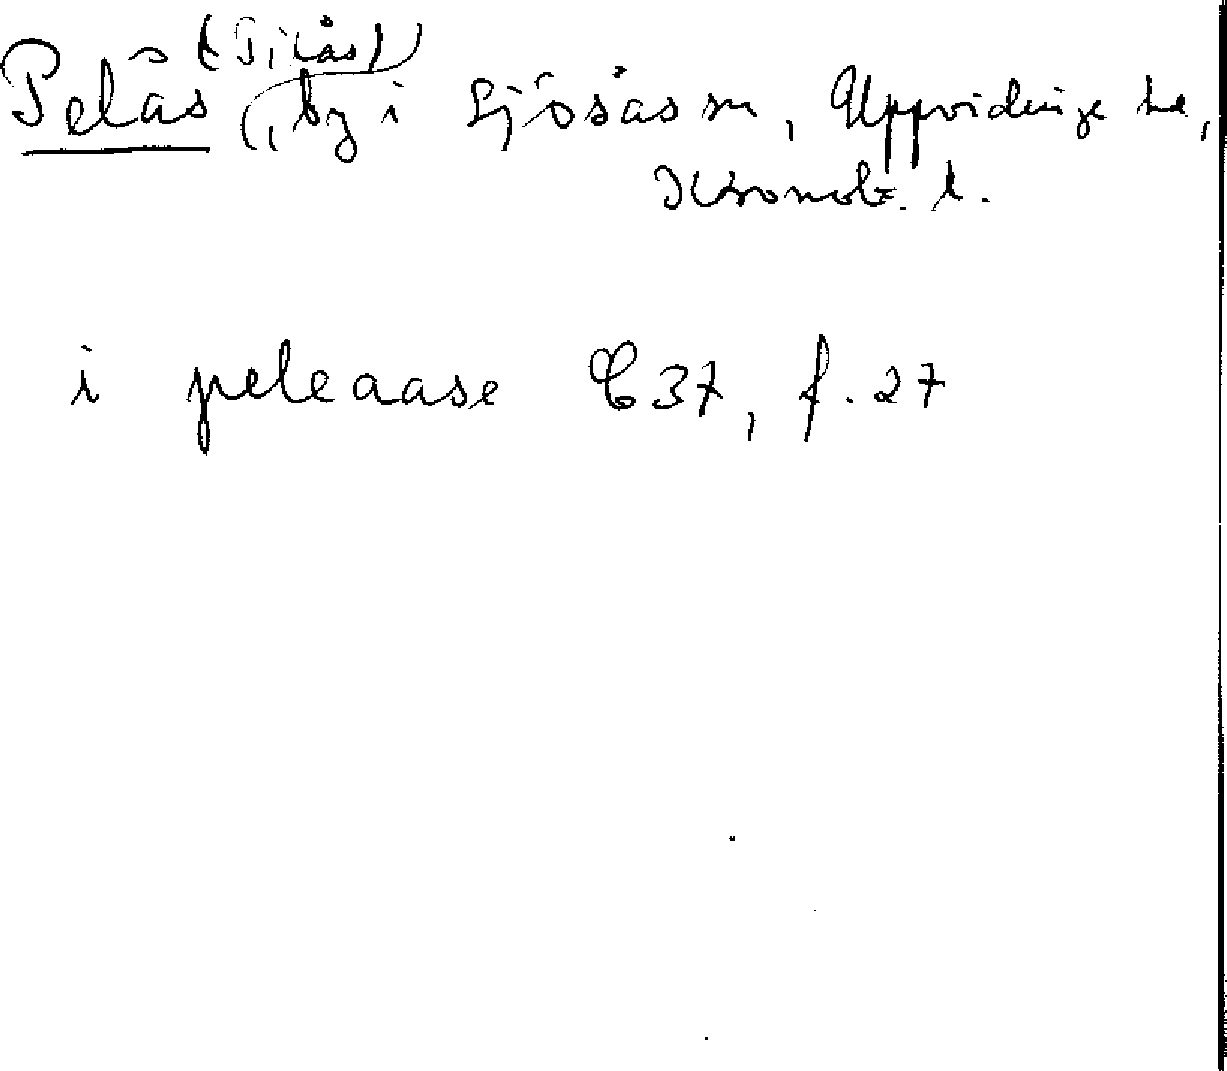 Pelås (Pilås), by i Sjösås sn, Uppvidinge hd,
Kronob. l.
i peleaase C 37, f. 27